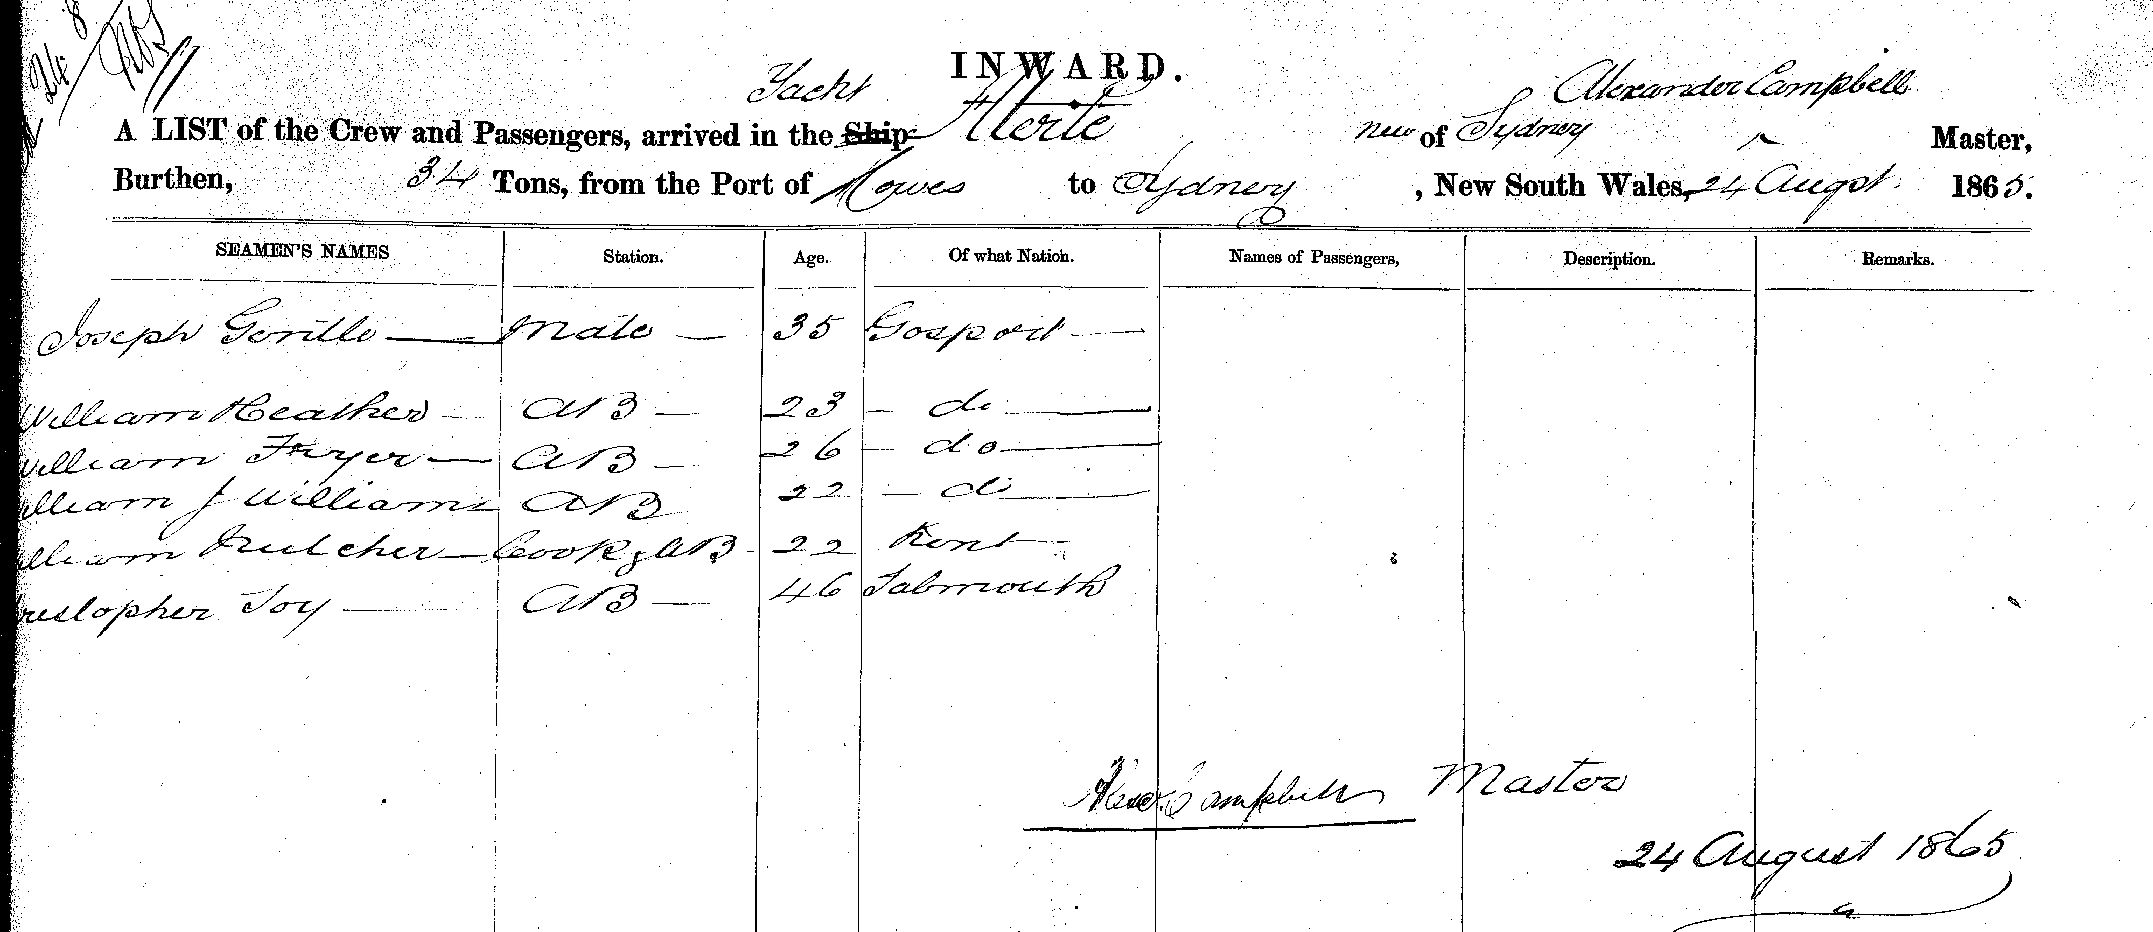 24/8
INWARD.
Yacht Alerte Alexander Campbell
A LIST of the Crew and Passengers, arrived in the Ship new of Sydney Master,
Burthen, 34 Tons, from the Port of Cowes to Sydney, New South Wales, 24 Augst. 1865.
SEAMEN'S NAMES Station. Age. Of what Nation. Names of Passengers, Description. Remarks.
Joseph Mate 35 Gosport
William Heather AB 23 do
William Fryer AB 26 do
illiam J Williams AB 22 do
illiam Cook & AB 22 Kent
ristopher Toy AB 46 Falmouth
Alexr. Campbell Master
24 August 1865